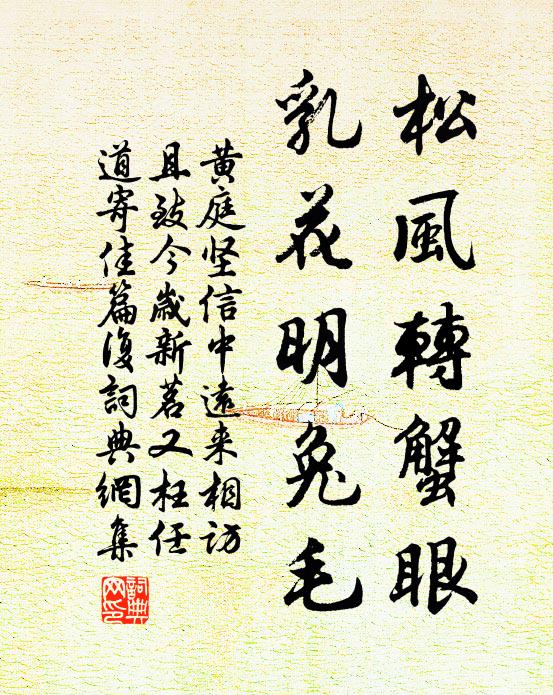 松風轉蟹眼
乳花明兔毛
黄庭坚信中遠来相訪
且致今歲新茗又枉任
道寄佳篇復詞典網集
詞典
网印